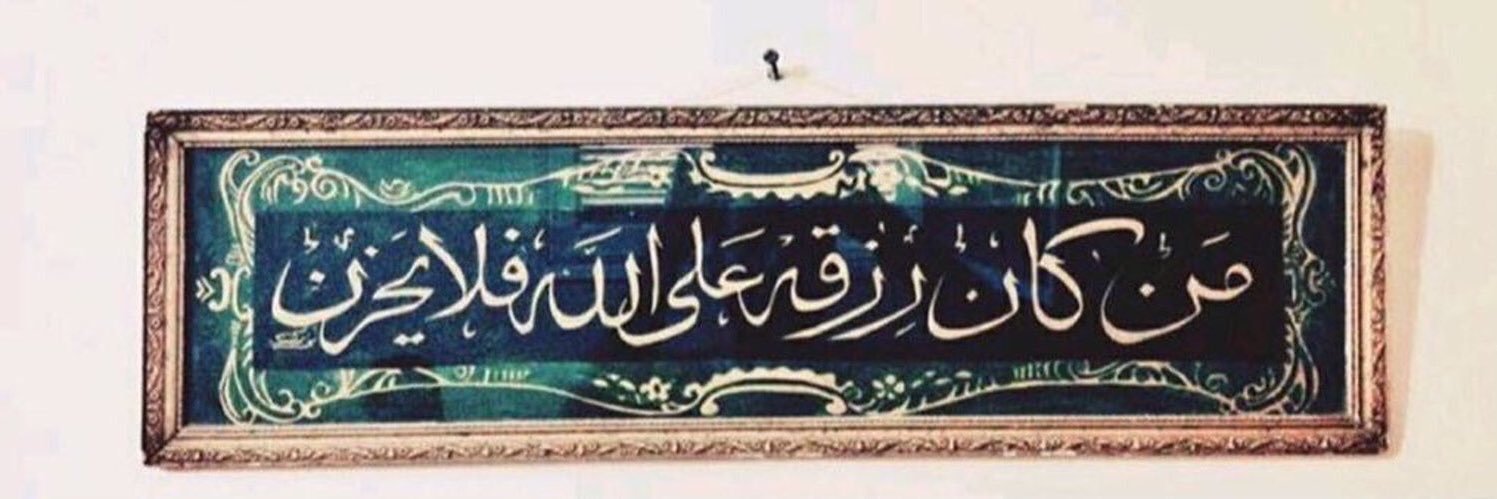 مَنْ كَانَ رِزْقُهُ عَلَى اللَّهِ فَلَا يَحْزَنْ